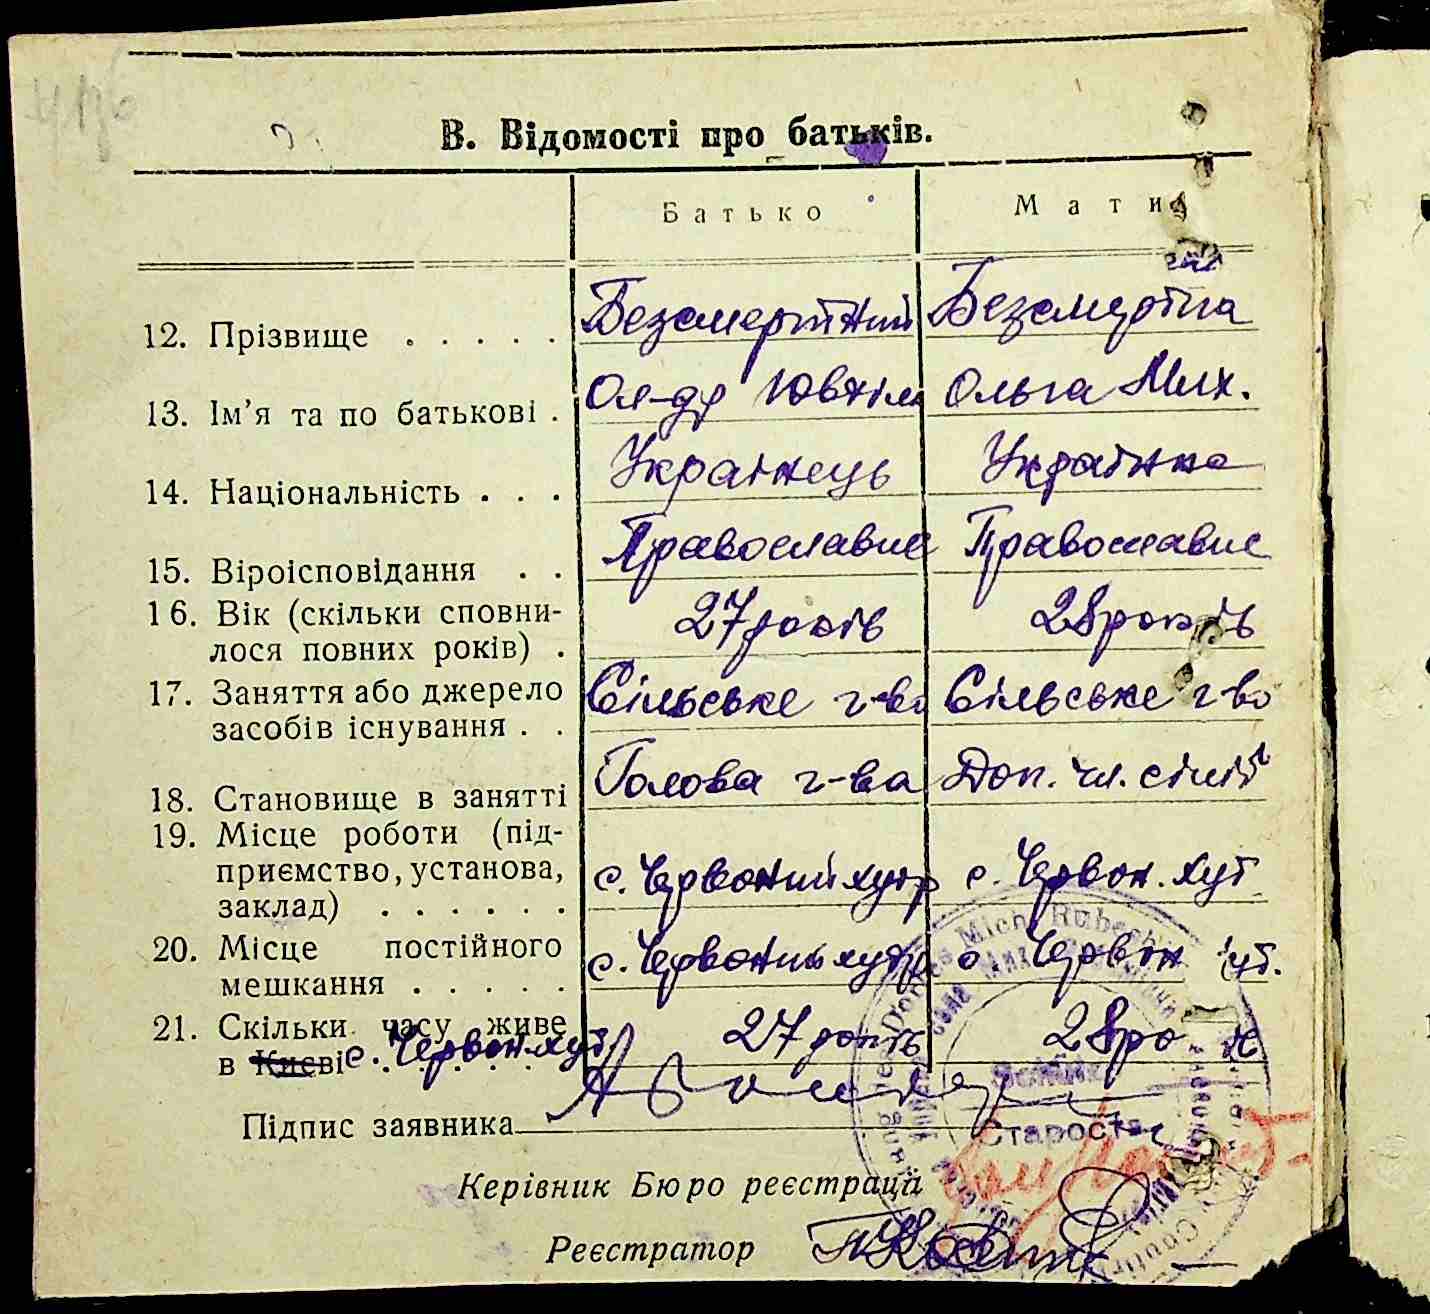 В. Відомості про батьків.
Батько Мати
12. Прізвище . . . . . Безсмертний Безсмертна
13. Ім'я та по батькові . Ол-др Ольга Мих.
14. Національність . . . Українець Українка
15. Віроісповідання . . Православне Православне
16. Вік (скільки сповни-
лося повних років) . 27 років 28 років
17. Заняття або джерело
засобів існування . . Сільське г-во Сільське г-во
18. Становище в занятті Голова г-ва Доп. чл. сімії
19. Місце роботи (під-
приємство, установа,
заклад) . . . . . . с. Червоний хутр с. Червон. хут
20. Місце постійного
мешкання . . . . . с. Червоний хутр с. Червон хут.
21. Скільки часу живе
в Києві с. Червон хут. 27 років 28 ро
Підпис заявника
Староста
Керівник Бюро реєстрації
Реєстратор